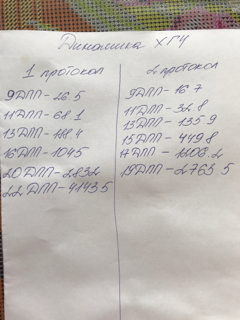 Динамика ХГЧ
1 протокол
9ДПП - 26.5
11ДПП - 68.1
13ДПП - 111.4
16ДПП - 1045
20ДПП - 2832
22ДПП - 4143.5
2 протокол
9ДПП - 16.7
11ДПП - 32.8
13ДПП - 135.9
15ДПП - 449.8
17ДПП - 1203.2
19ДПП - 2763.5